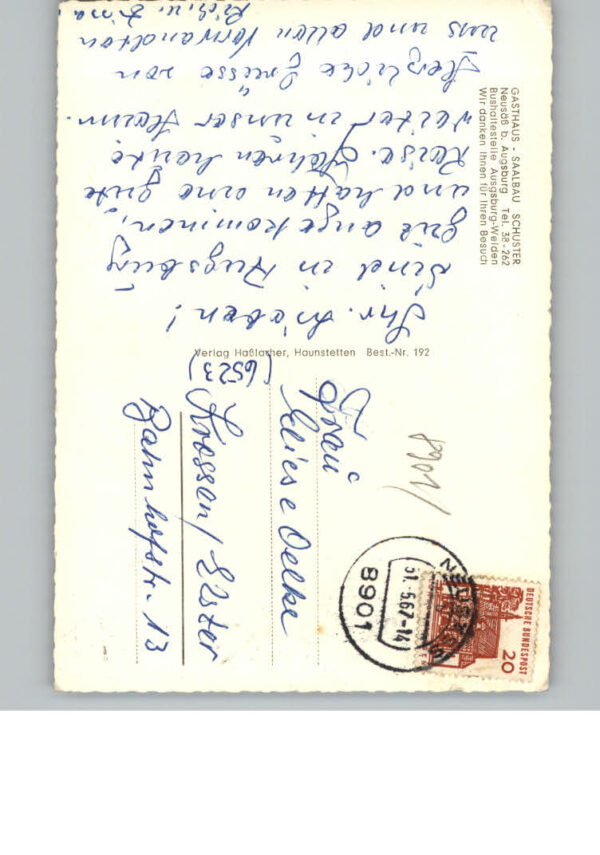 GASTHAUS - SAALBAU SCHUSTER
Neusäß b. Augsburg Tel. 38-262
Bushaltestelle Augsburg-Welden
Wir danken Ihnen für Ihren Besuch
Ihr Lieben!
Sind in Augsburg
gut angekommen,
und hatten eine gute
Reise. Fahren heute
weiter in unser Heim.
Herzliche Grüsse von
uns und allen Verwandten
u.
Verlag Haßlacher, Haunstetten Best.-Nr. 192
8901
DEUTSCHE BUNDESPOST
20
8901
31.-5.67-14
Frau
Oelke
(6523)
Krossen/Elster
Bahnhofstr. 13